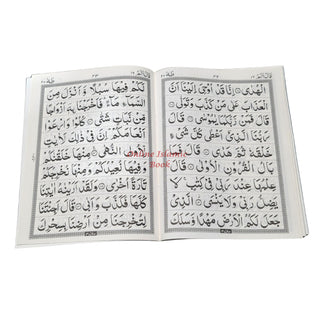 الْهُدٰى ۝ اِنَّا قَدْ اُوْحِيَ اِلَيْنَاۤ اَنَّ
الْعَذَابَ عَلٰى مَنْ كَذَّبَ وَتَوَلّٰى ۝
قَالَ فَمَنْ رَّبُّكُمَا يٰمُوْسٰى ۝ قَالَ
رَبُّنَا الَّذِيْۤ اَعْطٰى كُلَّ شَيْءٍ
خَلْقَهٗ ثُمَّ هَدٰى ۝ قَالَ فَمَا
بَالُ الْقُرُوْنِ الْاُوْلٰى ۝ قَالَ
عِلْمُهَا عِنْدَ رَبِّيْ فِيْ كِتٰبٍ ۚ لَا
يَضِلُّ رَبِّيْ وَلَا يَنْسَى ۝ الَّذِيْ
جَعَلَ لَكُمُ الْاَرْضَ مَهْدًا وَّسَلَكَ
لَكُمْ فِيْهَا سُبُلًا وَّاَنْزَلَ مِنَ
السَّمَآءِ مَآءً ؕ فَاَخْرَجْنَا بِهٖۤ اَزْوَاجًا
مِّنْ نَّبَاتٍ شَتّٰى ۝ كُلُوْا وَارْعَوْا
اَنْعَامَكُمْ ؕ اِنَّ فِيْ ذٰلِكَ لَاٰيٰتٍ
لِّاُولِي النُّهٰى ۝ مِنْهَا خَلَقْنٰكُمْ
وَفِيْهَا نُعِيْدُكُمْ وَمِنْهَا نُخْرِجُكُمْ
تَارَةً اُخْرٰى ۝ وَلَقَدْ اَرَيْنٰهُ اٰيٰتِنَا
كُلَّهَا فَكَذَّبَ وَاَبٰى ۝ قَالَ اَجِئْتَنَا
لِتُخْرِجَنَا مِنْ اَرْضِنَا بِسِحْرِكَ
Online Islamic
Book